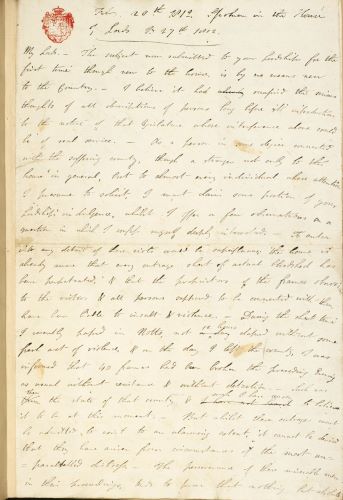 Fev. 20th 1812. Spoken in the House
of Lords F. 27th 1812.
My Lords. - The subject now submitted to your Lordships for the
first time though new to the House, is by no means new
to the Country. - I believe it had already occupied the serious
thoughts of all descriptions of persons long before its introduction
to the notice of that Legislature whose interference alone could
be of real service. - As a person in some degree connected
with the suffering county, though a stranger not only to this
house in general, but to almost every individual whose attention
I presume to solicit, I must claim some portion of your
Lordships indulgence, whilst I offer a few observations on a
question in which I confess myself deeply interested. - To enter
into any detail of these riots would be superfluous, the house is
already aware that every outrage short of actual bloodshed has
been perpetrated, & that the proprietors of the frames obnoxious
to the rioters & all persons supposed to be connected with them
have been liable to insult & violence. - During the short time
I recently passed in Notts, not 12 hours elapsed without some
fresh act of violence, & on the day I left the county, I was
informed that 40 frames had been broken the preceding Evening
as usual without resistance & without detection. - Such was
then the state of that county, & such I have reason to believe
it to be at this moment. - But whilst these outrages must
be admitted to exist to an alarming extent, it cannot be denied
that they have arisen from circumstances of the most un-
-paralleled distress. - The perseverance of these miserable men
in their proceedings, tends to prove that nothing but absolute